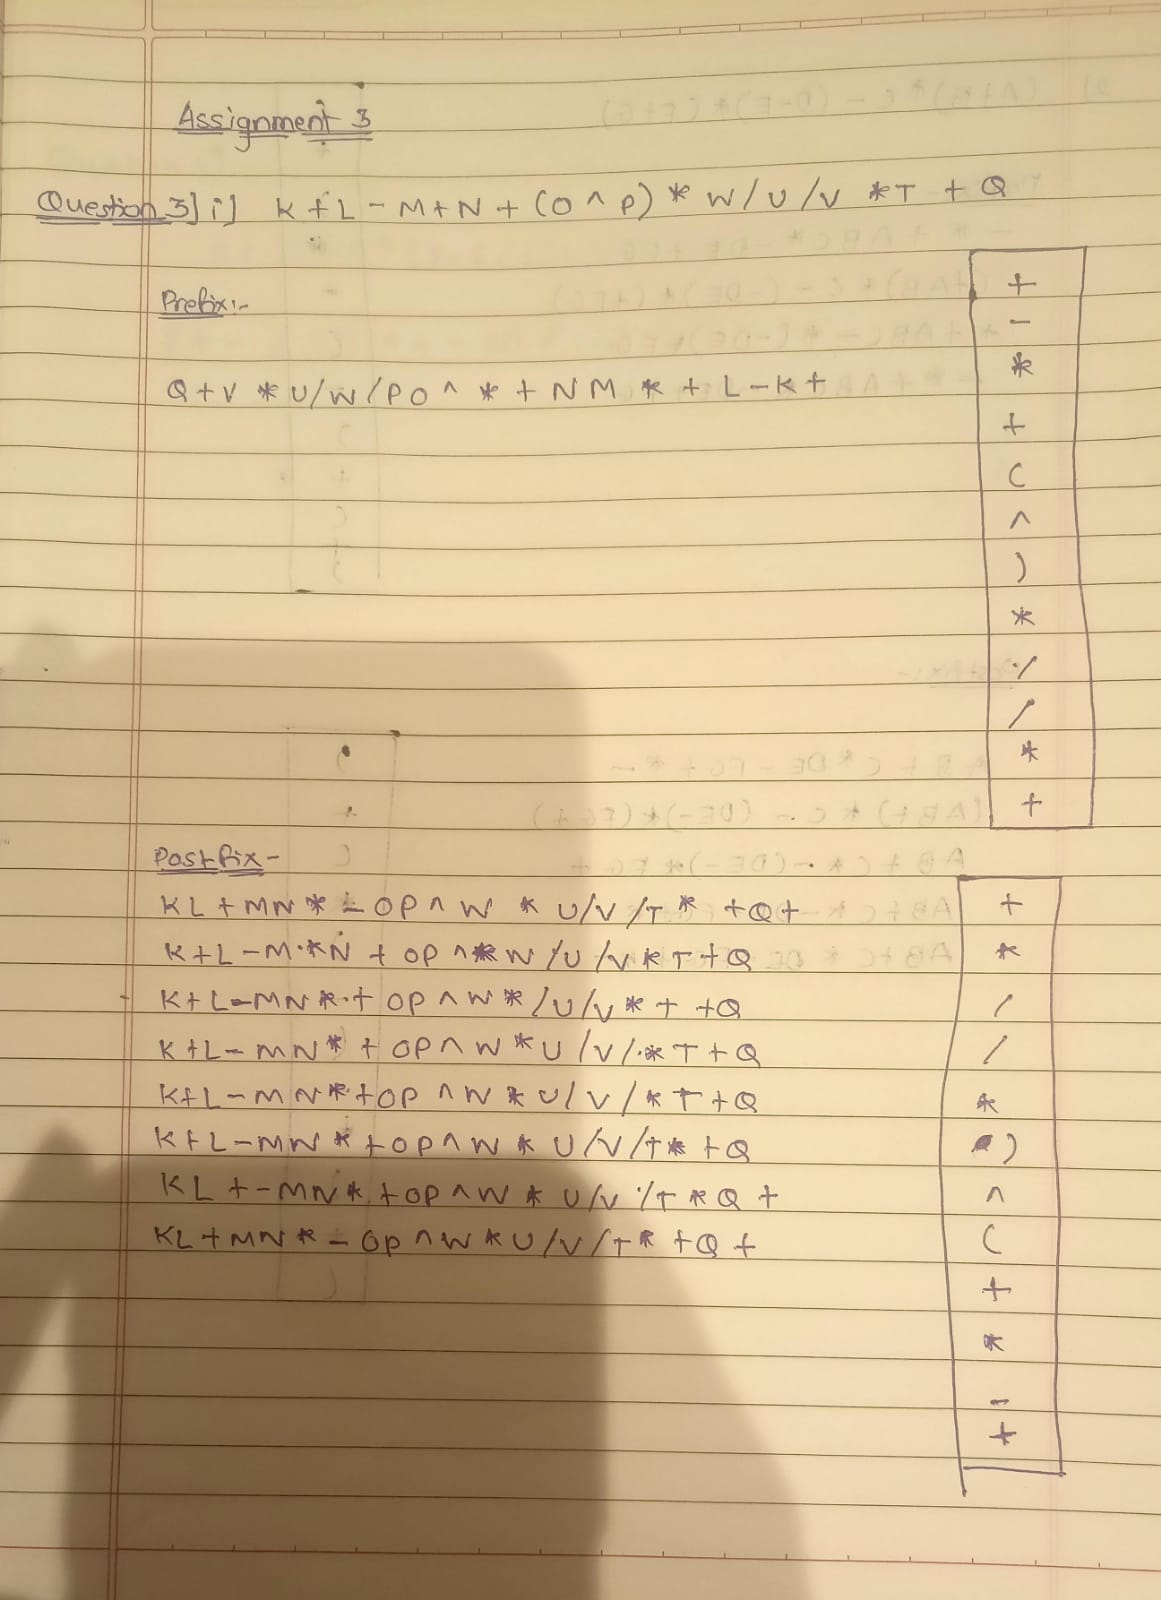 Assignment 3
Question 3] i] K + L - M + N + (O ^ P) * W / U / V * T + Q
Prefix:-
Q + V * U / W / P O ^ * + N M * + L - K +
+
-
*
+
(
^
)
*
/
/
*
+
Postfix -
K L + M N * - O P ^ W * U / V / T * + Q +
K + L - M * N + O P ^ * W / U / V * T + Q
K + L - M N * + O P ^ W * / U / V * T + Q
K + L - M N * + O P ^ W * U / V / * T + Q
K + L - M N * + O P ^ W * U / V / * T + Q
K + L - M N * + O P ^ W * U / V / T * + Q
K L + - M N * + O P ^ W * U / V / T * Q +
K L + M N * - O P ^ W * U / V / T * + Q +
+
*
/
/
*
)
^
(
+
*
-
+